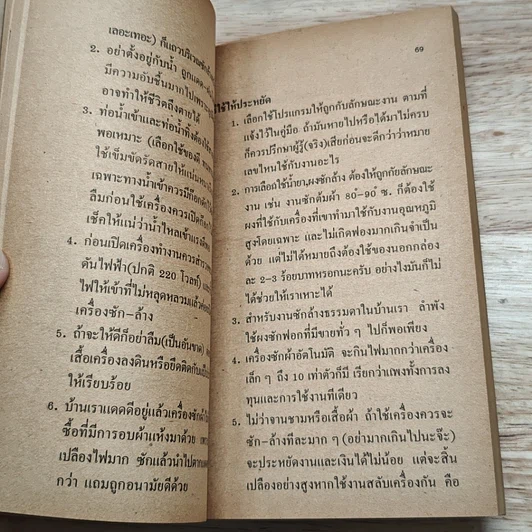 เลอะเทอะ) ก็แถวบริเวณซัก
2. อย่าตั้งอยู่กับน้ำ ถูกแดด
มีความอับชื้นมากไปเพราะ
อาจทำให้ชีวิตถึงตายได้
3. ท่อน้ำเข้าและท่อน้ำทิ้งต้อง
พอเหมาะ (เลือกใช้ของดี
ใช้เข็มขัดรัดสายให้แน่น
เฉพาะทางน้ำเข้าควรมีก๊อก
ลืมก่อนใช้เครื่องควรเปิดก๊อก
เช็คให้แน่ว่าน้ำไหลเข้าแรง
4. ก่อนเปิดเครื่องทำงานควรสำรวจ
ดันไฟฟ้า(ปกติ 220 โวลท์)
ไฟให้เข้าที่ไม่หลุดหลวมแล้ว
เครื่องซัก-ล้าง
5. ถ้าจะให้ดีก็อย่าลืม(เป็นอันขาด)
เสื้อเครื่องลงดินหรือยึดติดกับ
ให้เรียบร้อย
6. บ้านเราแดดดีอยู่แล้วเครื่องซักผ้า
ซื้อที่มีการอบผ้าแห้งมาด้วย เพราะ
เปลืองไฟมาก ซักแล้วนำไปตาก
กว่า แถมถูกอนามัยดีด้วย
69
ใช้ให้ประหยัด
1. เลือกใช้โปรแกรมให้ถูกกับลักษณะงาน ตามที่
แจ้งไว้ในคู่มือ ถ้ามันหายไปหรือได้มาไม่ครบ
ก็ควรปรึกษาผู้รู้(จริง)เสียก่อนจะดีกว่าว่าหมาย
เลขไหนใช้กับงานอะไร
2. การเลือกใช้น้ำยา,ผงซักล้าง ต้องให้ถูกกับลักษณะ
งาน เช่น งานซักต้มผ้า 80°-90° ซ. ก็ต้องใช้
ผงที่ใช้กับเครื่องที่เขาทำมาใช้กับงานอุณหภูมิ
สูงโดยเฉพาะ และไม่เกิดฟองมากเกินจำเป็น
ด้วย แต่ไม่ได้หมายถึงต้องใช้ของนอกกล่อง
ละ 2-3 ร้อยบาทหรอกนะครับ อย่างไงมันก็ไม่
ได้ช่วยให้เราเหาะได้
3. สำหรับงานซักล้างธรรมดาในบ้านเรา ลำพัง
ใช้ผงซักฟอกที่มีขายทั่ว ๆ ไปก็พอเพียง
4. เครื่องซักผ้าอัตโนมัติ จะกินไฟมากกว่าเครื่อง
เล็ก ๆ ถึง 10 เท่าตัวก็มี เรียกว่าแพงทั้งการลง
ทุนและการใช้งานทีเดียว
5. ไม่ว่าจานชามหรือเสื้อผ้า ถ้าใช้เครื่องควรจะ
ซัก-ล้างทีละมาก ๆ (อย่ามากเกินไปนะจ๊ะ)
จะประหยัดงานและเงินได้ไม่น้อย แต่จะสิ้น
เปลืองอย่างสูงหากใช้งานสลับเครื่องกัน คือ